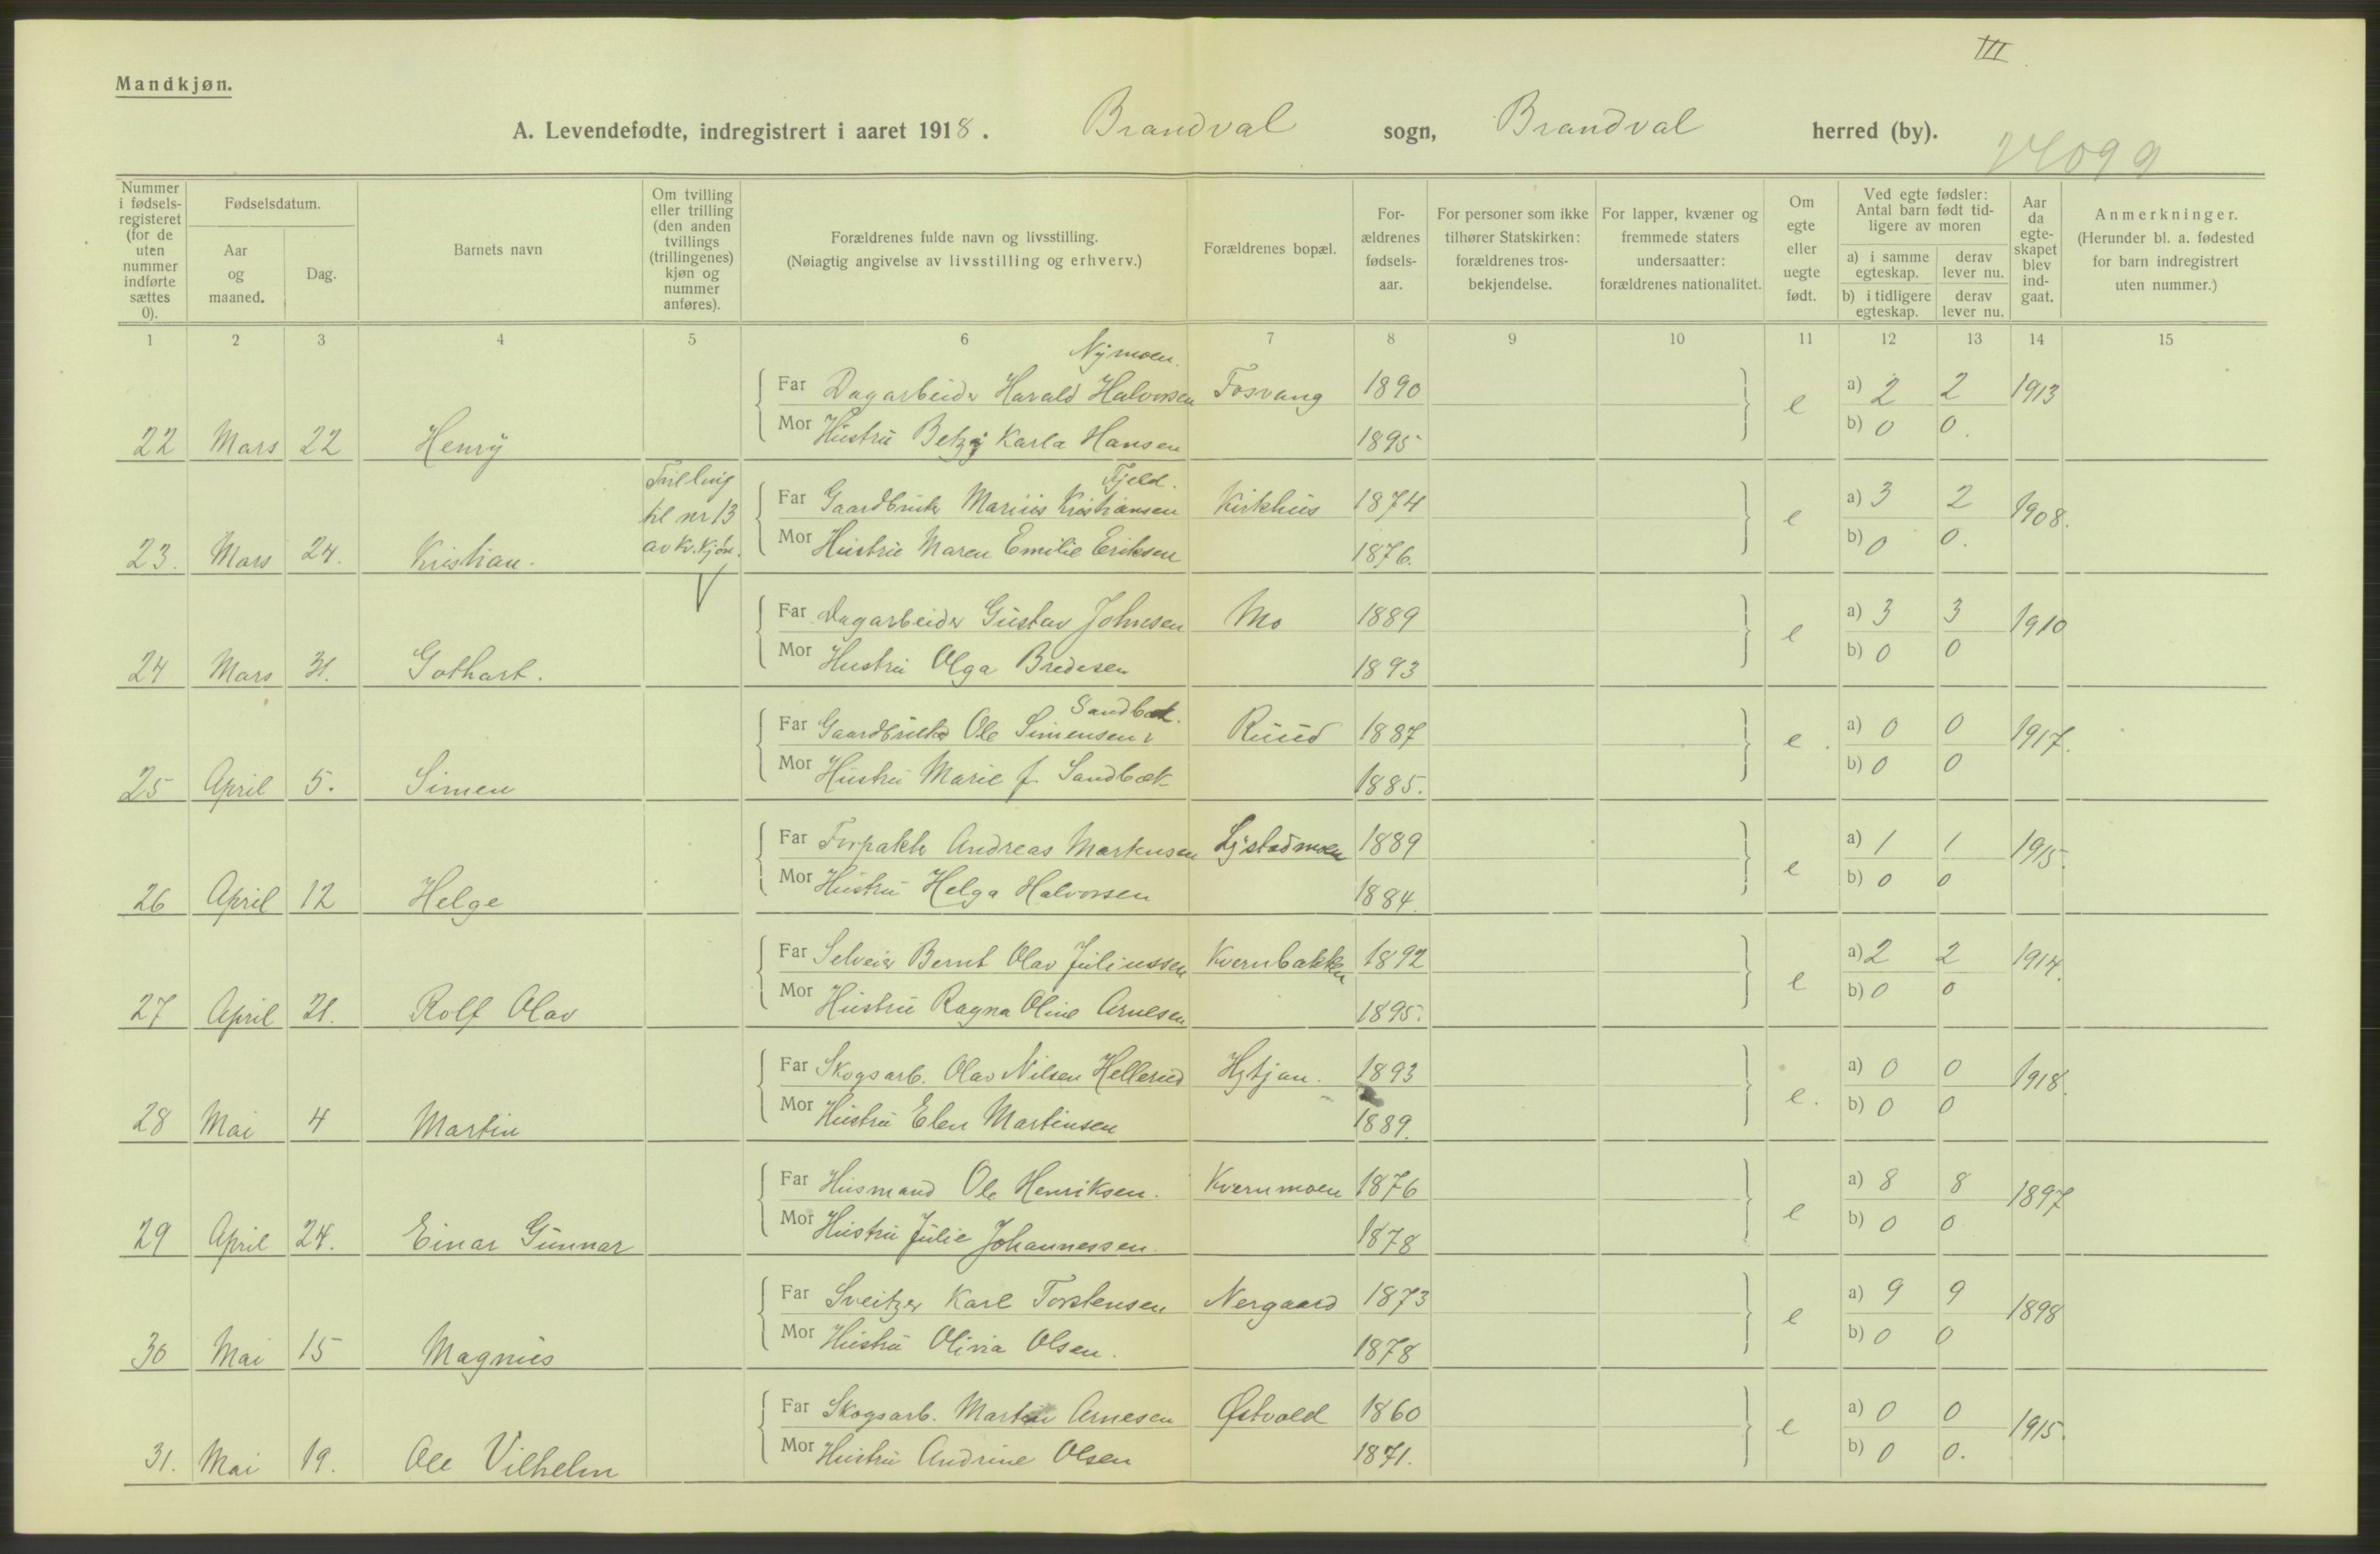 III
Mandkjøn.
A. Levendefødte, indregistrert i aaret 1918. Brandval sogn, Brandval herred (by).
Nummer i fødselsregisteret (for de uten nummer indførte sættes 0).
Fødselsdatum.
Aar og maaned.
Dag.
Barnets navn
Om tvilling eller trilling (den anden tvillings (trillingenes) kjøn og nummer anføres).
Forældrenes fulde navn og livsstilling.
(Nøiagtig angivelse av livsstilling og erhverv.)
Forældrenes bopæl.
Forældrenes fødselsaar.
For personer som ikke tilhører Statskirken: forældrenes trosbekjendelse.
For lapper, kvæner og fremmede staters undersaatter: forældrenes nationalitet.
Om egte eller uegte født.
Ved egte fødsler: Antal barn født tidligere av moren
a) i samme egteskap.
derav lever nu.
b) i tidligere egteskap.
derav lever nu.
Aar da egteskapet blev indgaat.
Anmerkninger.
(Herunder bl. a. fødested for barn indregistrert uten nummer.)
1 2 3 4 5 6 7 8 9 10 11 12 13 14 15
Nymoen.
Far Dagarbeider Harald Halvorsen Fosvang 1890 e a) 2 2 1913
22 Mars 22 Henry Mor Hustru Betzy Karla Hansen 1895 b) 0 0.
Tvilling til nr 13 av kv. kjøn.
Fjeld.
Far Gaardbruker Marius Kristiansen Kirkhus 1874 e a) 3 2 1908.
23. Mars 24. Kristian. Mor Hustru Maren Emilie Eriksen 1876. b) 0 0.
Far Dagarbeider Gustav Johnsen Mo 1889 e a) 3 3 1910
24 Mars 31. Gothart. Mor Hustru Olga Bredesen 1893 b) 0 0
Sandbæk.
Far Gaardbruker Ole Simensen Ruud 1887 e. a) 0 0 1917.
25 April 5. Simen Mor Hustru Marie f. Sandbæk 1885. b) 0 0
Far Forpakter Andreas Markusen Ljstadmoen 1889 e a) 1 1 1915.
26 April 12 Helge Mor Hustru Helga Halvorsen 1884. b) 0 0
Far Selveier Bernt Olav Juliussen Kvernbakken 1892 e a) 2 2 1914.
27 April 21. Rolf Olav Mor Hustru Ragna Oline Arnesen 1895. b) 0 0
Far Skogsarb. Olav Nilsen Hellerud 1893 e. a) 0 0 1918.
28 Mai 4 Martin Mor Hustru Elen Martinsen 1889. b) 0 0
Far Husmand Ole Henriksen. Kvernmoen 1876 e a) 8 8 1897
29 April 24. Einar Gunnar Mor Hustru Julie Johannessen. 1878 b) 0 0
Far Sveitzer Karl Torstensen Nergaard 1873 e a) 9 9 1898
30 Mai 15 Magnus Mor Hustru Olivia Olsen. 1878 b) 0 0
Far Skogsarb. Martin Arnesen Østvold 1860 e a) 0 0 1915.
31. Mai 19. Ole Vilhelm Mor Hustru Andrine Olsen 1871. b) 0 0.